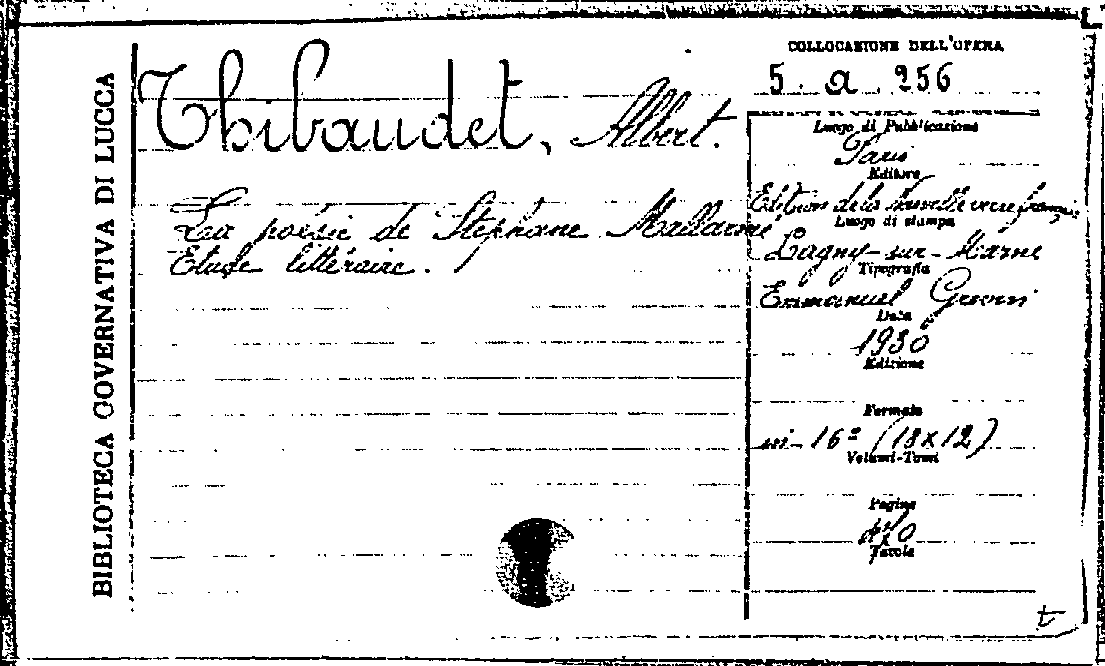 BIBLIOTECA GOVERNATIVA DI LUCCA
Thibaudet, Albert.
La poésie de Stéphane Mallarmé
Etude littéraire.
COLLOCAZIONE DELL'OPERA
5. a. 256
Luogo di Pubblicazione
Paris
Editore
Edition de la Nouvelle revue française
Luogo di stampa
Lagny-sur-Marne
Tipografia
Emmanuel Grevin
Data
1930
Edizione
Formato
in-16º (18x12)
Volumi-Tomi
Pagine
470
Tavole
t